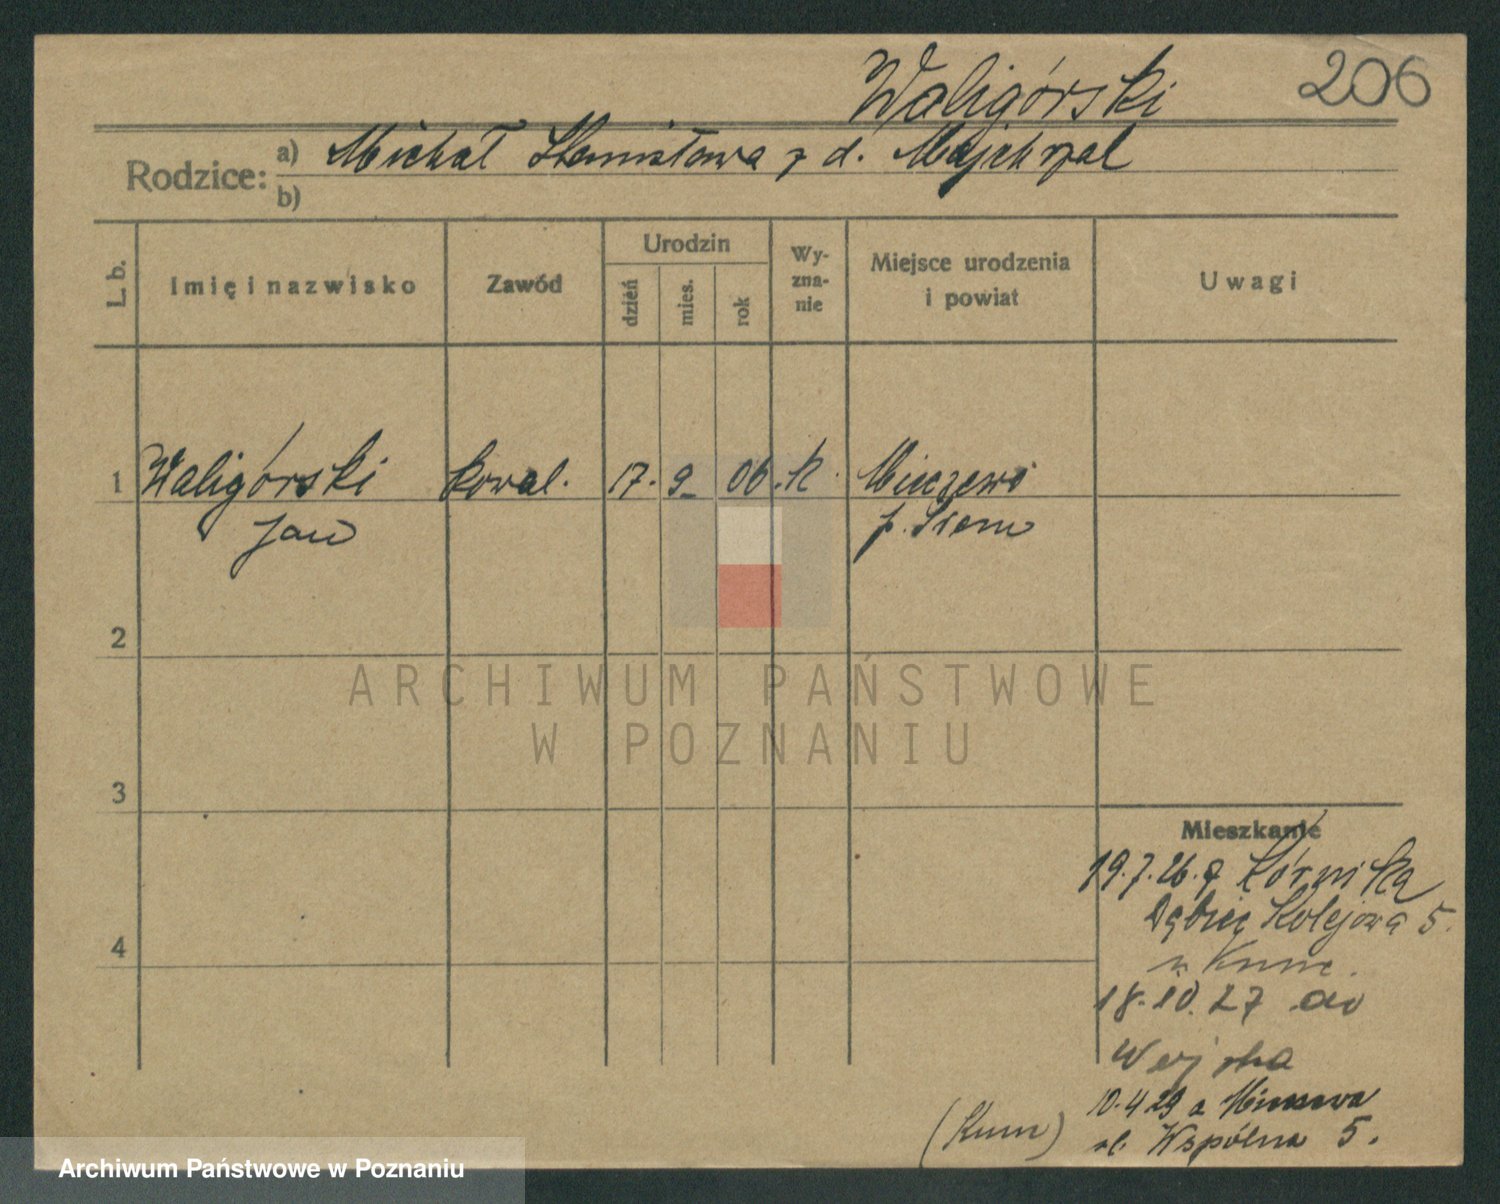 Waligórski
206
Rodzice:
a) Michał Stanisława z d. Majchrzak
b)
L. b.
Imię i nazwisko
Zawód
Urodzin
dzień
mies.
rok
Wy-
zna-
nie
Miejsce urodzenia
i powiat
Uwagi
1 Waligórski kowal. 17. 9 06. k. Mieczewo
Jan p. Śrem
2
ARCHIWUM PAŃSTWOWE
W POZNANIU
3
Mieszkanie
19.7.26. z Kórnika
Dębiec Kolejowa 5.
18.10.27 do
Wojska
10.4.29 z Mieczewa
(Kunn) ul. Wspólna 5.
Archiwum Państwowe w Poznaniu
4